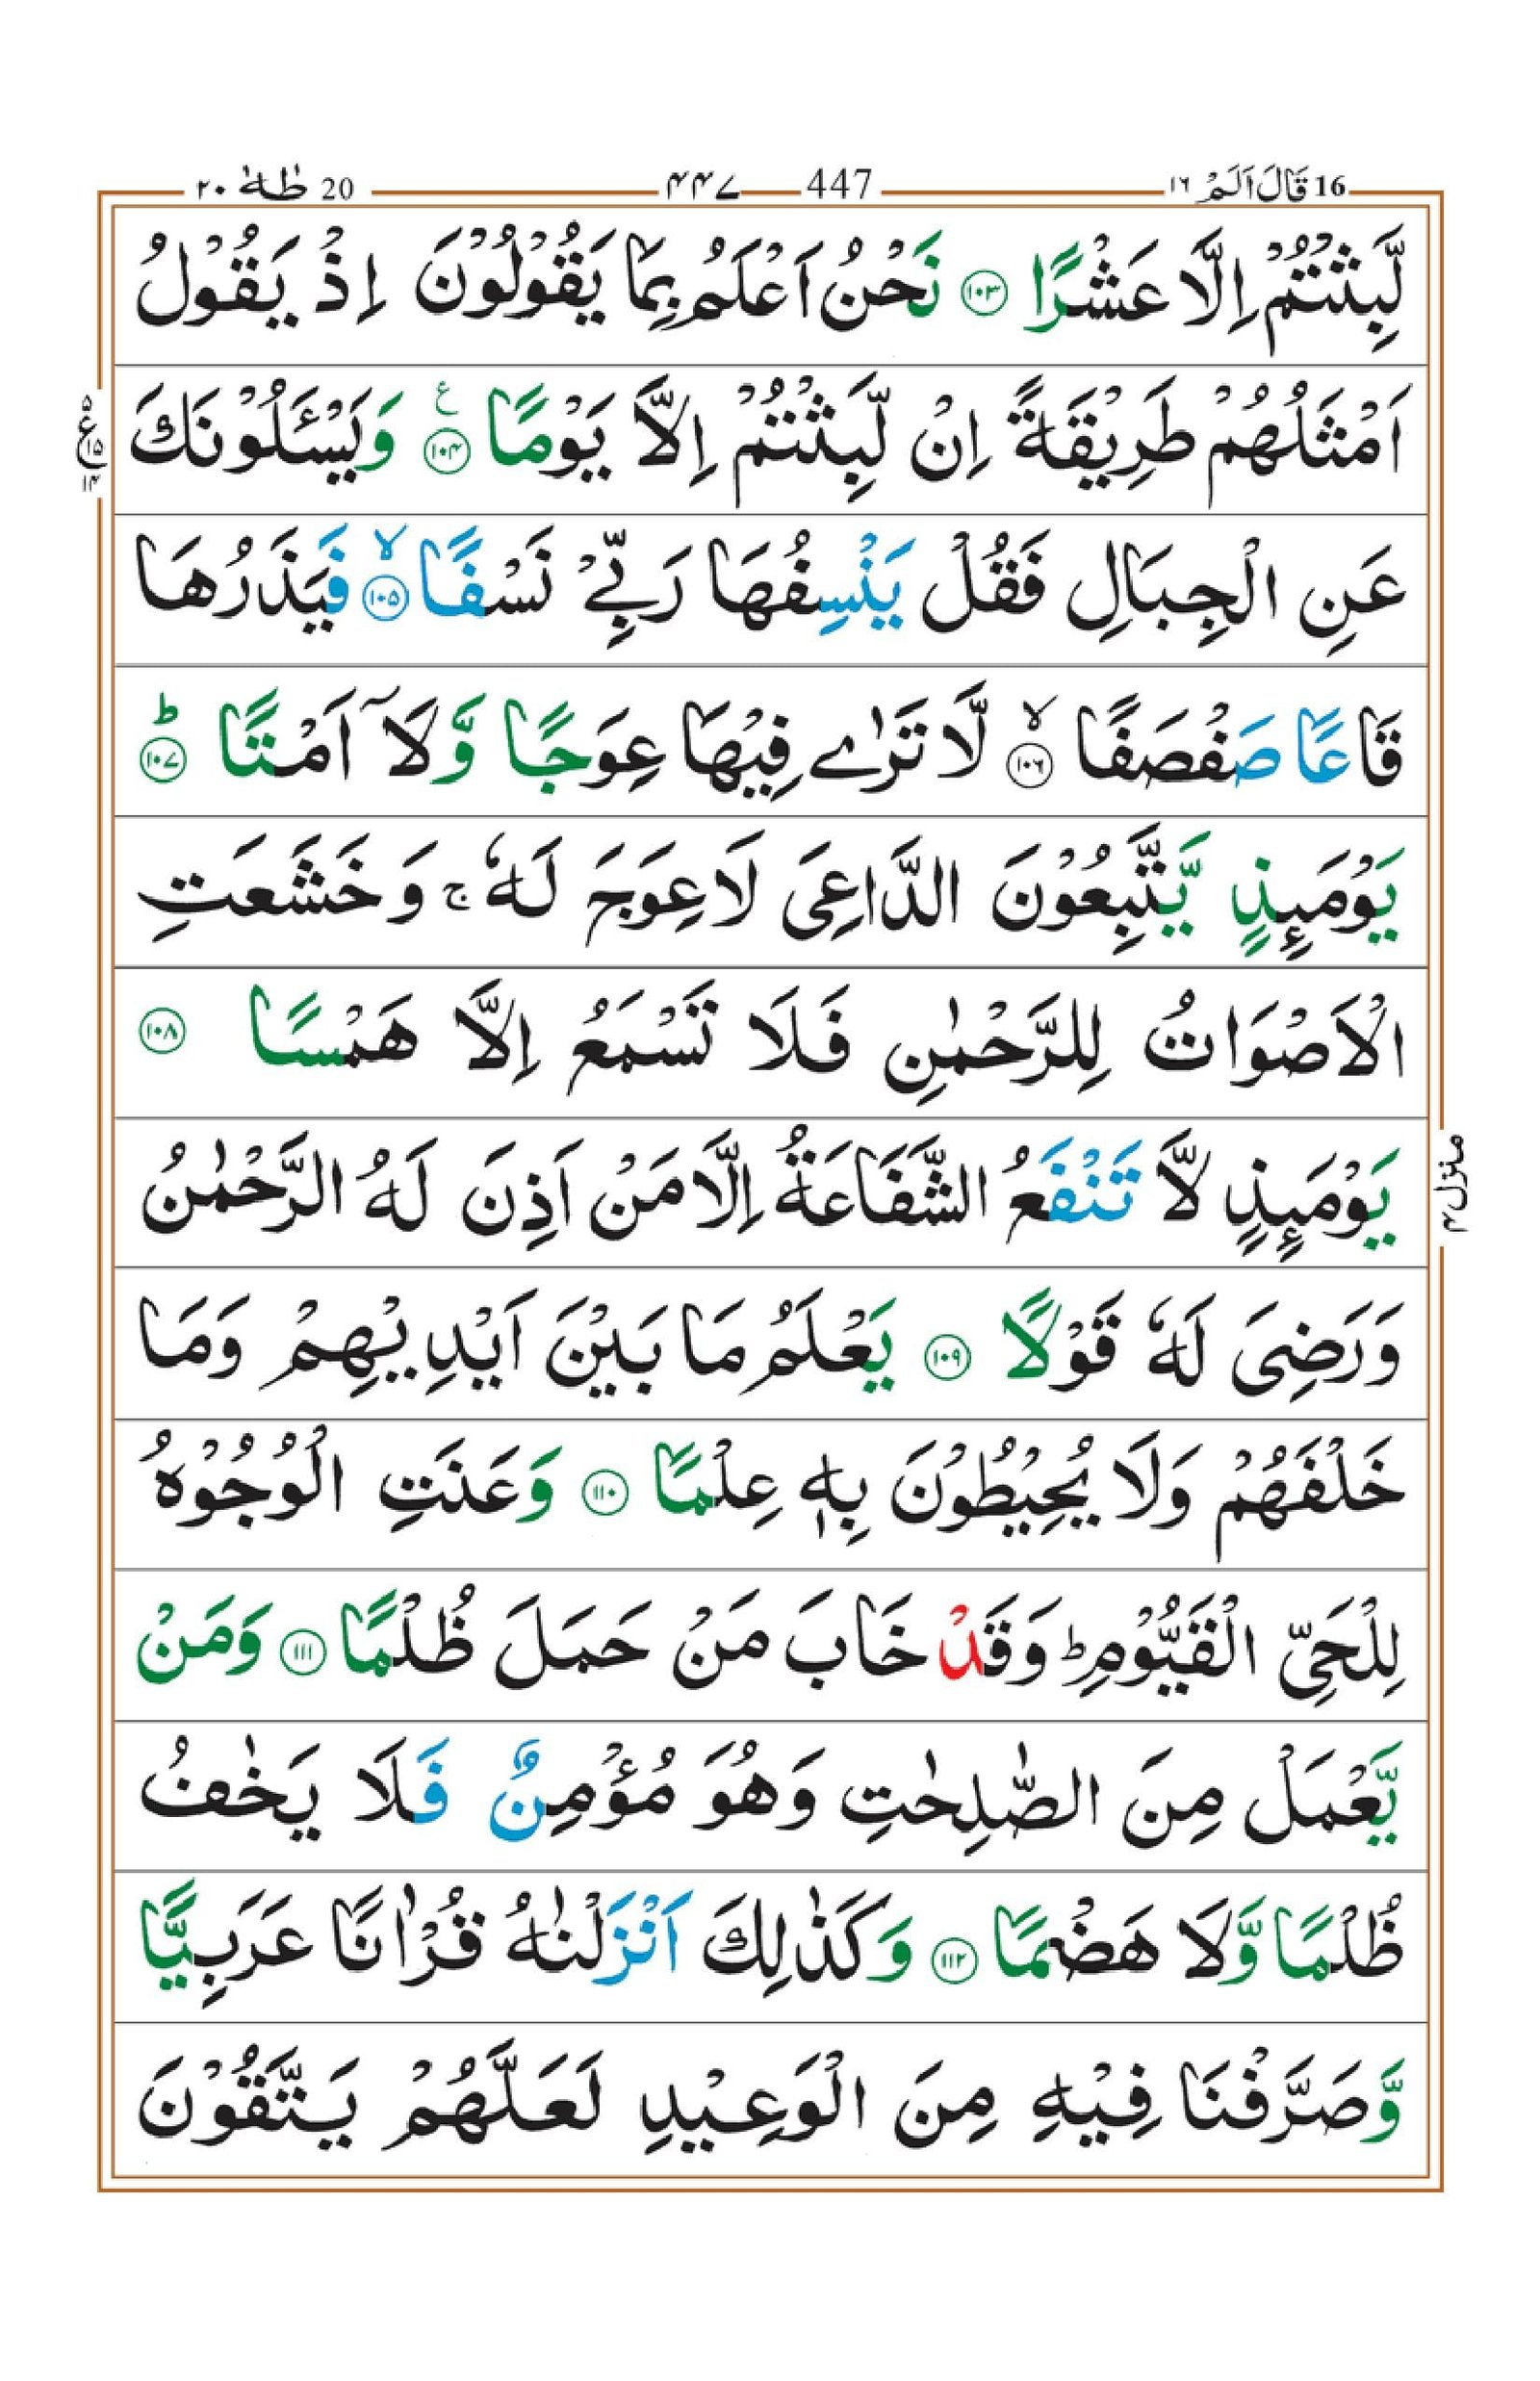 16 قَالَ اَلَمْ ١٦ 447 ۴۴۷ 20 طٰهٰ ٢٠
لَّبِثْتُمْ اِلَّا عَشْرًا ۝۱۰۳ نَحْنُ اَعْلَمُ بِمَا يَقُوْلُوْنَ اِذْ يَقُوْلُ
اَمْثَلُهُمْ طَرِيْقَةً اِنْ لَّبِثْتُمْ اِلَّا يَوْمًا ۝۱۰۴ ع وَيَسْـَٔلُوْنَكَ
۵ ع ۱۵ ۱۴
عَنِ الْجِبَالِ فَقُلْ يَنْسِفُهَا رَبِّيْ نَسْفًا ۝۱۰۵ۙ فَيَذَرُهَا
قَاعًا صَفْصَفًا ۝۱۰۶ۙ لَّا تَرٰى فِيْهَا عِوَجًا وَّلَآ اَمْتًا ۝۱۰۷ؕ
يَوْمَىِٕذٍ يَّتَّبِعُوْنَ الدَّاعِيَ لَا عِوَجَ لَهٗ ۚ وَخَشَعَتِ
الْاَصْوَاتُ لِلرَّحْمٰنِ فَلَا تَسْمَعُ اِلَّا هَمْسًا ۝۱۰۸
يَوْمَىِٕذٍ لَّا تَنْفَعُ الشَّفَاعَةُ اِلَّا مَنْ اَذِنَ لَهُ الرَّحْمٰنُ
منزل ۴
وَرَضِيَ لَهٗ قَوْلًا ۝۱۰۹ يَعْلَمُ مَا بَيْنَ اَيْدِيْهِمْ وَمَا
خَلْفَهُمْ وَلَا يُحِيْطُوْنَ بِهٖ عِلْمًا ۝۱۱۰ وَعَنَتِ الْوُجُوْهُ
لِلْحَيِّ الْقَيُّوْمِ ؕ وَقَدْ خَابَ مَنْ حَمَلَ ظُلْمًا ۝۱۱۱ وَمَنْ
يَّعْمَلْ مِنَ الصّٰلِحٰتِ وَهُوَ مُؤْمِنٌ فَلَا يَخٰفُ
ظُلْمًا وَّلَا هَضْمًا ۝۱۱۲ وَكَذٰلِكَ اَنْزَلْنٰهُ قُرْاٰنًا عَرَبِيًّا
وَّصَرَّفْنَا فِيْهِ مِنَ الْوَعِيْدِ لَعَلَّهُمْ يَتَّقُوْنَ